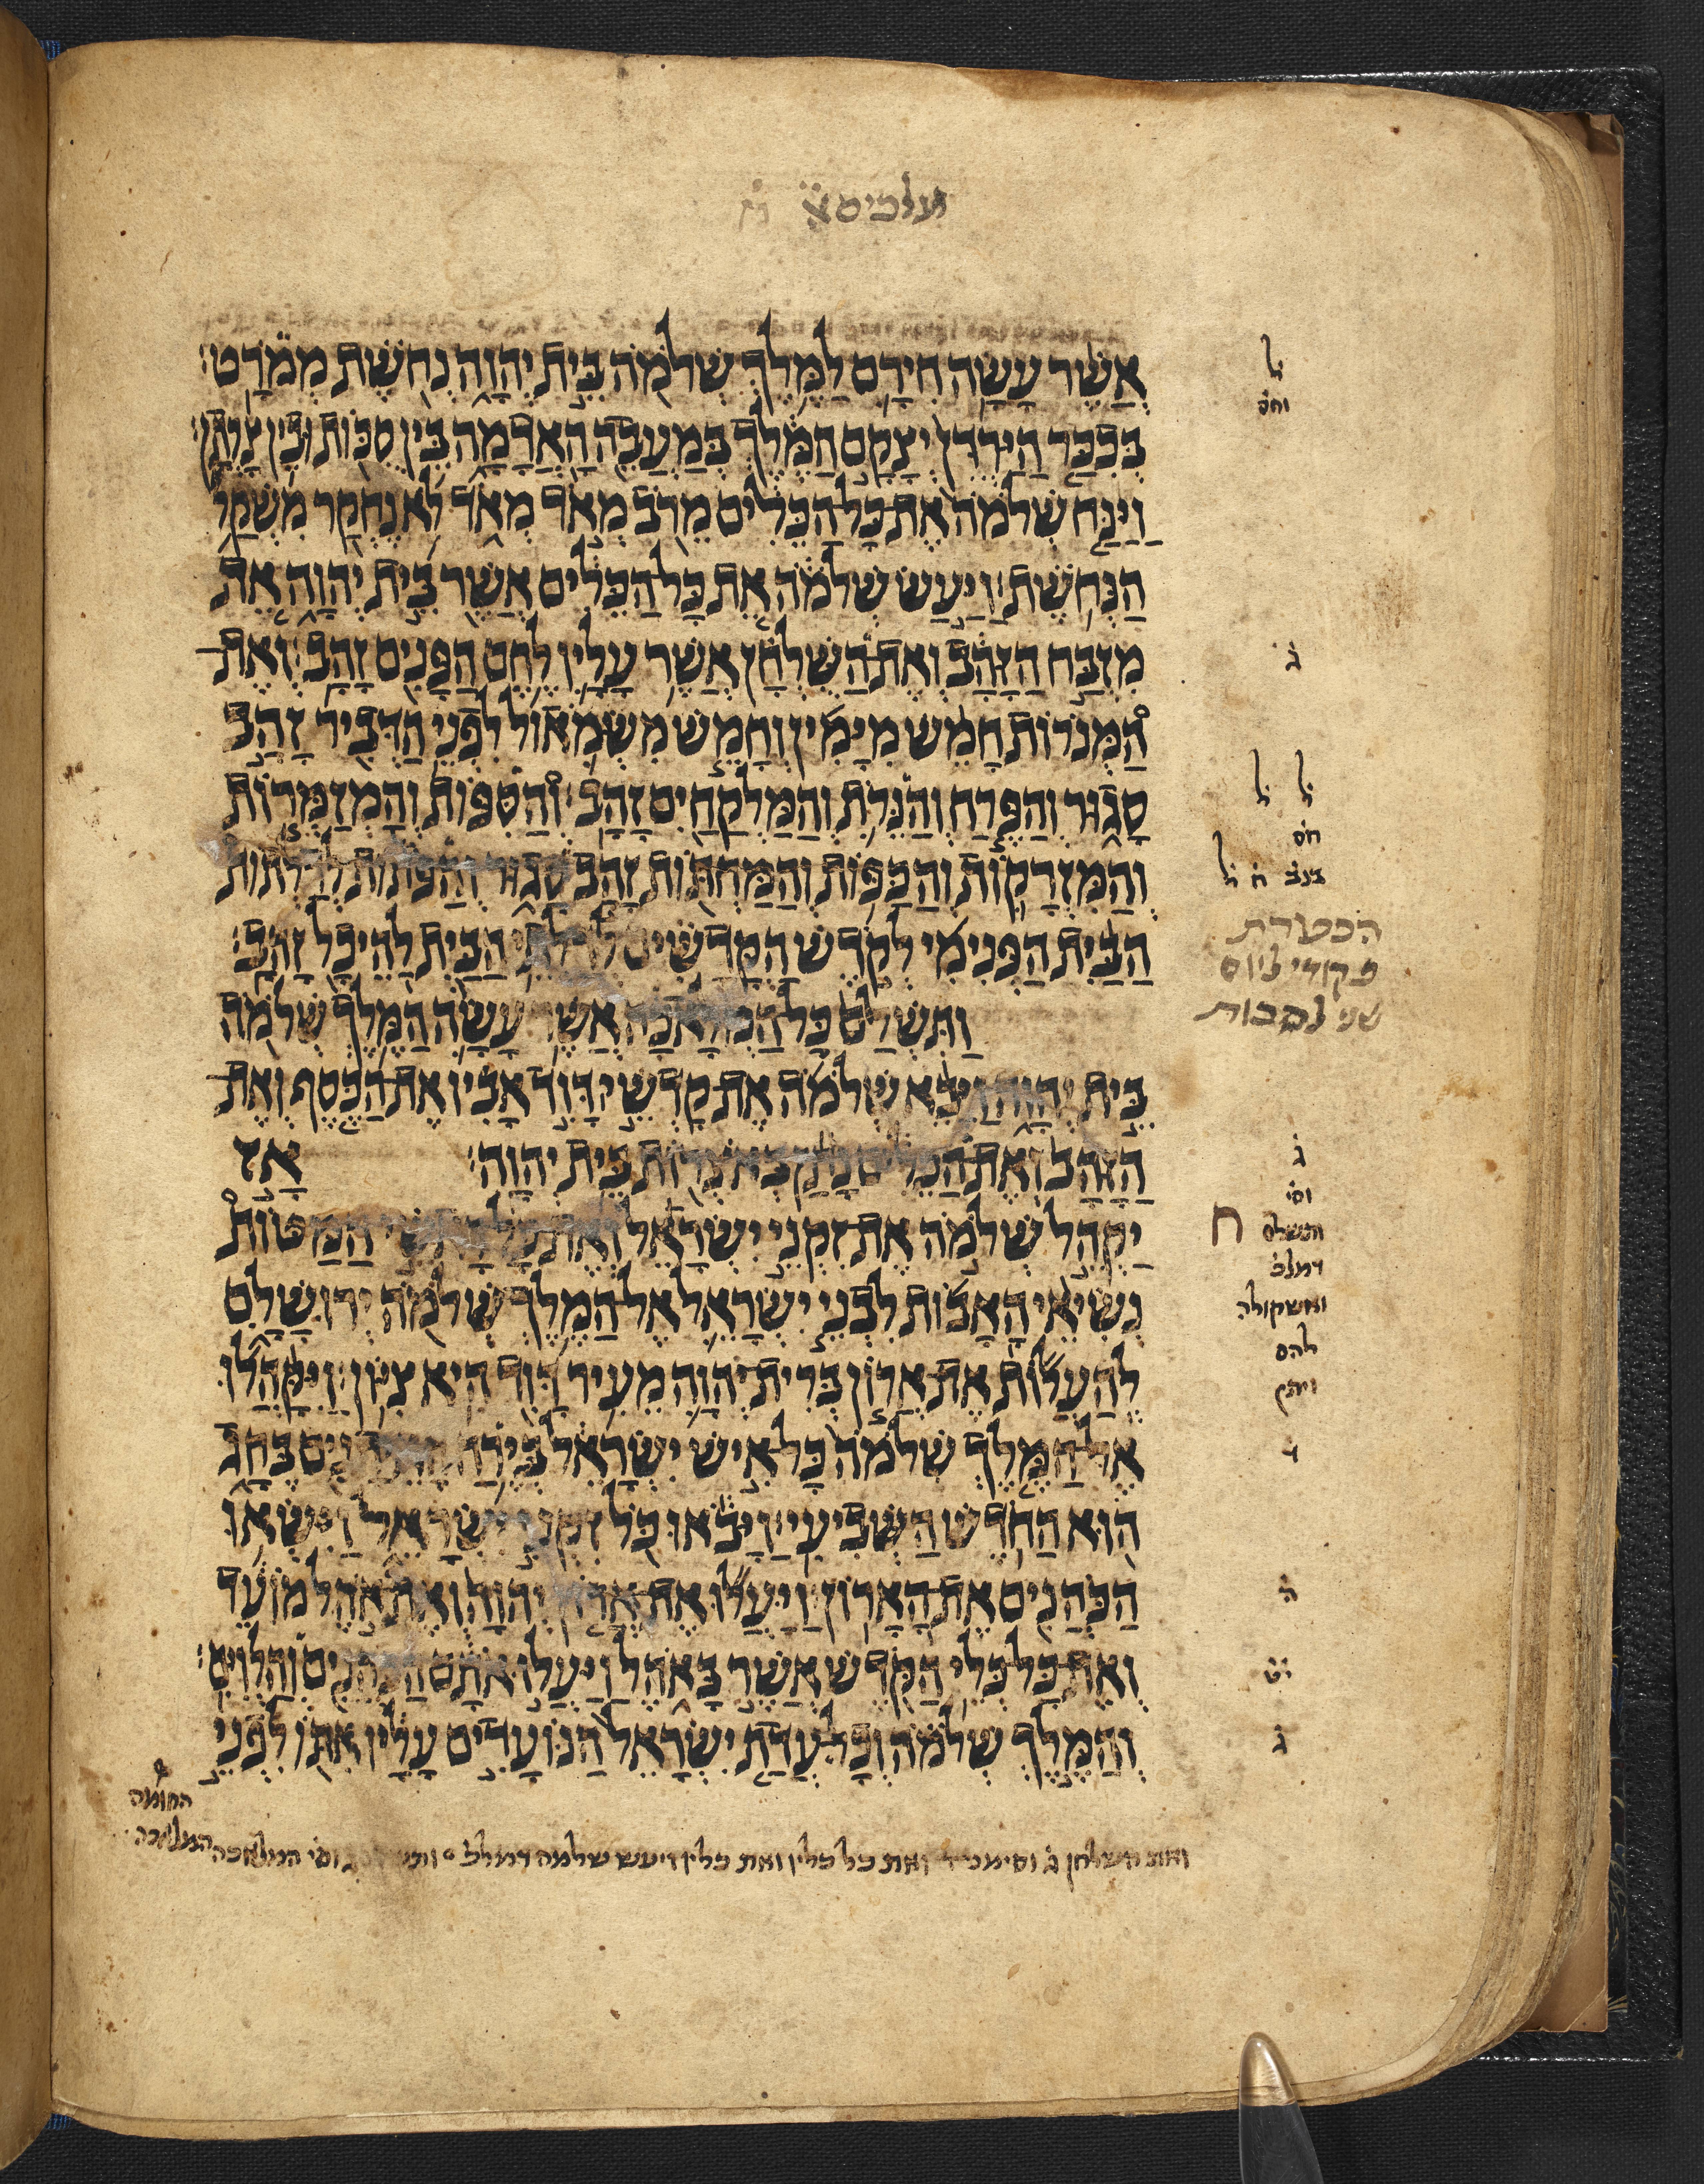 מלכים א̈
אֲשֶׁר עָשָׂה חִירָם לַמֶּלֶךְ שְׁלֹמֹה בֵּית יְהוָה נְחֹשֶׁת מְמֹרָט׃
בְּכִכַּר הַיַּרְדֵּן יְצָקָם הַמֶּלֶךְ בְּמַעֲבֵה הָאֲדָמָה בֵּין סֻכּוֹת וּבֵין צָרְתָן׃
וַיַּנַּח שְׁלֹמֹה אֶת־כָּל־הַכֵּלִים מֵרֹב מְאֹד מְאֹד לֹא נֶחְקַר מִשְׁקַל
הַנְּחֹשֶׁת׃ וַיַּעַשׂ שְׁלֹמֹה אֵת כָּל־הַכֵּלִים אֲשֶׁר בֵּית יְהוָה אֵת
מִזְבַּח הַזָּהָב וְאֶת־הַשֻּׁלְחָן אֲשֶׁר עָלָיו לֶחֶם הַפָּנִים זָהָב׃ וְאֶת־
הַמְּנֹרוֹת חָמֵשׁ מִיָּמִין וְחָמֵשׁ מִשְּׂמֹאול לִפְנֵי הַדְּבִיר זָהָב
סָגוּר וְהַפֶּרַח וְהַנֵּרֹת וְהַמֶּלְקַחַיִם זָהָב׃ וְהַסִּפּוֹת וְהַמְזַמְּרוֹת
וְהַמִּזְרָקוֹת וְהַכַּפּוֹת וְהַמַּחְתּוֹת זָהָב סָגוּר וְהַפֹּתוֹת לְדַלְתוֹת
הַבַּיִת הַפְּנִימִי לְקֹדֶשׁ הַקֳּדָשִׁים לְדַלְתֵי הַבַּיִת לַהֵיכָל זָהָב׃
וַתִּשְׁלַם כָּל־הַמְּלָאכָה אֲשֶׁר עָשָׂה הַמֶּלֶךְ שְׁלֹמֹה
בֵּית יְהוָה וַיָּבֵא שְׁלֹמֹה אֶת־קָדְשֵׁי דָּוִד אָבִיו אֶת־הַכֶּסֶף וְאֶת־
הַזָּהָב וְאֶת־הַכֵּלִים נָתַן בְּאֹצְרוֹת בֵּית יְהוָה׃ אָז
יַקְהֵל שְׁלֹמֹה אֶת־זִקְנֵי יִשְׂרָאֵל וְאֶת־כָּל־רָאשֵׁי הַמַּטּוֹת
נְשִׂיאֵי הָאָבוֹת לִבְנֵי יִשְׂרָאֵל אֶל־הַמֶּלֶךְ שְׁלֹמֹה יְרוּשָׁלִָם
לְהַעֲלוֹת אֶת־אֲרוֹן בְּרִית־יְהוָה מֵעִיר דָּוִד הִיא צִיּוֹן׃ וַיִּקָּהֲלוּ
אֶל־הַמֶּלֶךְ שְׁלֹמֹה כָּל־אִישׁ יִשְׂרָאֵל בְּיֶרַח הָאֵתָנִים בֶּחָג
הוּא הַחֹדֶשׁ הַשְּׁבִיעִי׃ וַיָּבֹאוּ כֹּל זִקְנֵי יִשְׂרָאֵל וַיִּשְׂאוּ
הַכֹּהֲנִים אֶת־הָאָרוֹן׃ וַיַּעֲלוּ אֶת־אֲרוֹן יְהוָה וְאֶת־אֹהֶל מוֹעֵד
וְאֶת־כָּל־כְּלֵי הַקֹּדֶשׁ אֲשֶׁר בָּאֹהֶל וַיַּעֲלוּ אֹתָם הַכֹּהֲנִים וְהַלְוִיִּם׃
וְהַמֶּלֶךְ שְׁלֹמֹה וְכָל־עֲדַת יִשְׂרָאֵל הַנּוֹעָדִים עָלָיו אִתּוֹ לִפְנֵי
ל̇
וחס̇
ג̇
ל̇ ל̇
חס̇
הפטרת
פקודי ביום
שני לסכות
ג̇
וס̇י
ותשלם
ח
דמלכ̇
להם
ד
ה̇
י̇ט̇
ג̇
ואת השלחן ג̇ וסימנ ואת כל כליו ואת כליו ויעש שלמה דמלכ̇ וס̇י המלאכה
החומה
המלאכה